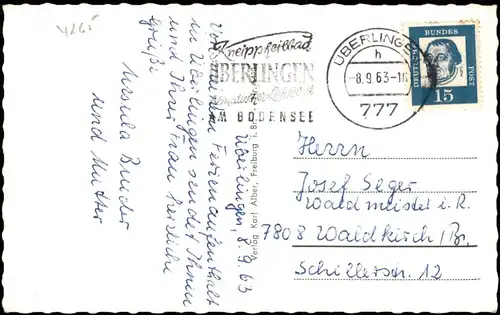 4265
Überlingen, 8.9.63
Von seinem Ferienaufenthalt
in Überlingen sendet Ihnen
und Ihrer Frau herzliche
Grüße
Ursula Binder
und Mutter
Verlag Karl Alber, Freiburg i. Br.
Kneippheilbad
ÜBERLINGEN
AM BODENSEE
ÜBERLINGEN
h
-8.9.63-10
777
DEUTSCHE
BUNDES
POST
15
Herrn
Josef Seger
Waldmeister i.R.
7808 Waldkirch/Br.
Schillerstr. 12